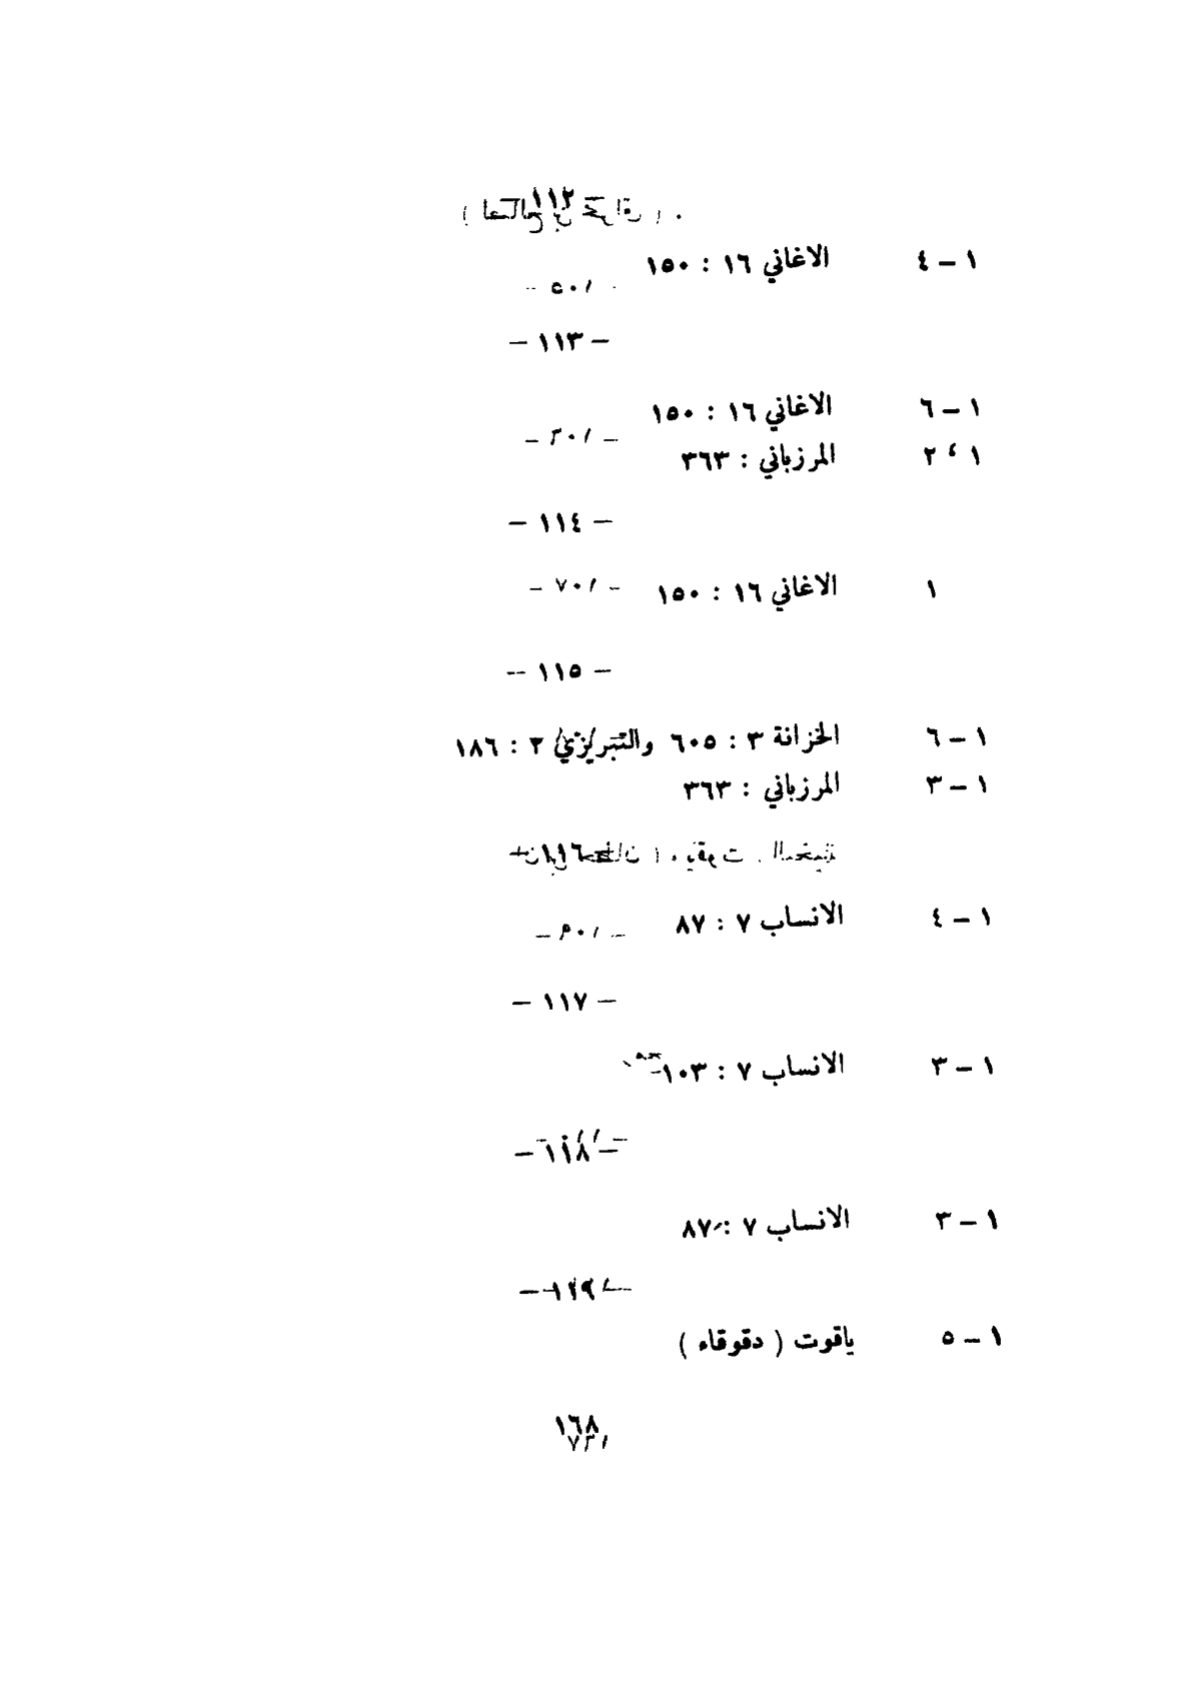 ١١٢
١ – ٤ الاغاني ١٦ : ١٥٠
– ١١٣ –
١ – ٦ الاغاني ١٦ : ١٥٠
١ ، ٢ المرزباني : ٣٦٣
– ١١٤ –
١ الاغاني ١٦ : ١٥٠
– ١١٥ –
١ – ٦ الخزانة ٣ : ٦٠٥ والتبريزي ٢ : ١٨٦
١ – ٣ المرزباني : ٣٦٣
١١٦
١ – ٤ الانساب ٧ : ٨٧
– ١١٧ –
١ – ٣ الانساب ٧ : ١٠٣
– ١١٨ –
١ – ٣ الانساب ٧ : ٨٧
– ١١٩ –
١ – ٥ ياقوت ( دقوقاء )
١٦٨